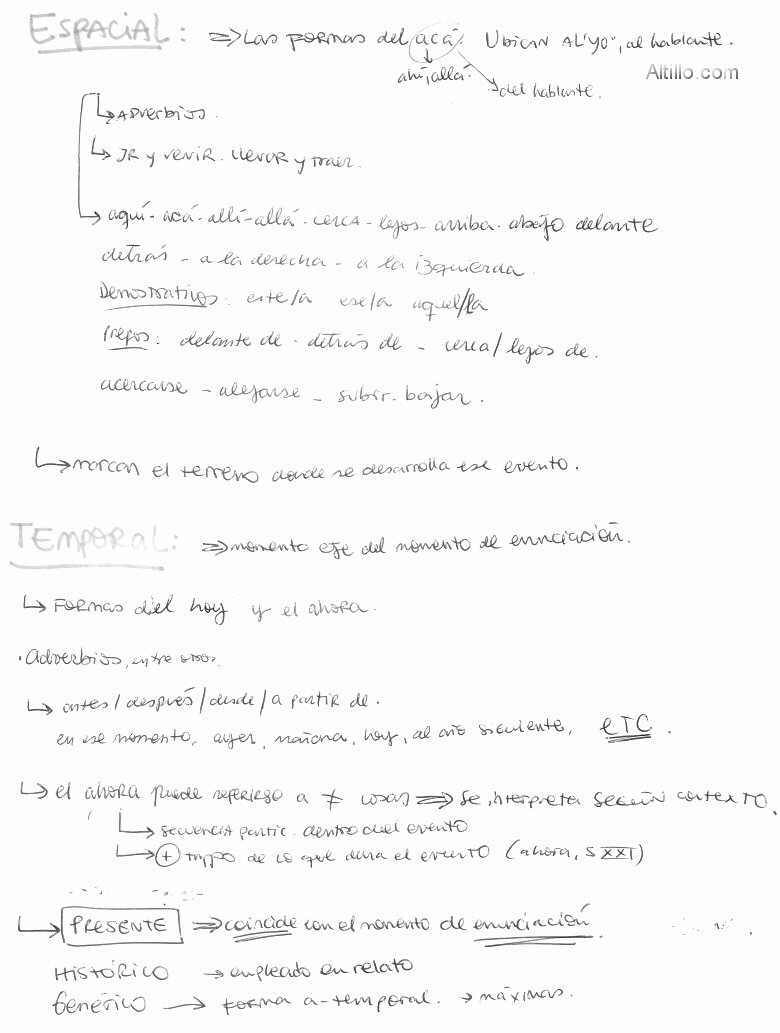 ESPACIAL: ⇒ Las formas del acá. Ubican al "yo", al hablante.
ahí, allá.
Altillo.com
del hablante.
↳ Adverbios.
↳ IR y venir. llevar y traer.
↳ aquí - acá - allí - allá - cerca - lejos - arriba - abajo delante
detrás - a la derecha - a la izquierda.
Demostrativos: este/a ese/a aquel/la
Prepos: delante de - detrás de - cerca/lejos de.
acercarse - alejarse - subir - bajar.
↳ marcan el terreno donde se desarrolla ese evento.
TEMPORAL: ⇒ momento eje del momento de enunciación.
↳ Formas del hoy y el ahora.
· Adverbios, entre otros.
↳ antes / después / desde / a partir de.
en ese momento, ayer, mañana, hoy, al año siguiente, ETC.
↳ el ahora puede a ≠ cosas ⇒ Se interpreta según contexto.
↳ secuencia partic. dentro del evento
↳ ⊕ tmpo de lo que dura el evento (ahora, S XXI)
↳ PRESENTE ⇒ coincide con el momento de enunciación.
HISTÓRICO → empleado en relato
Genérico → forma a-temporal. → máximas.